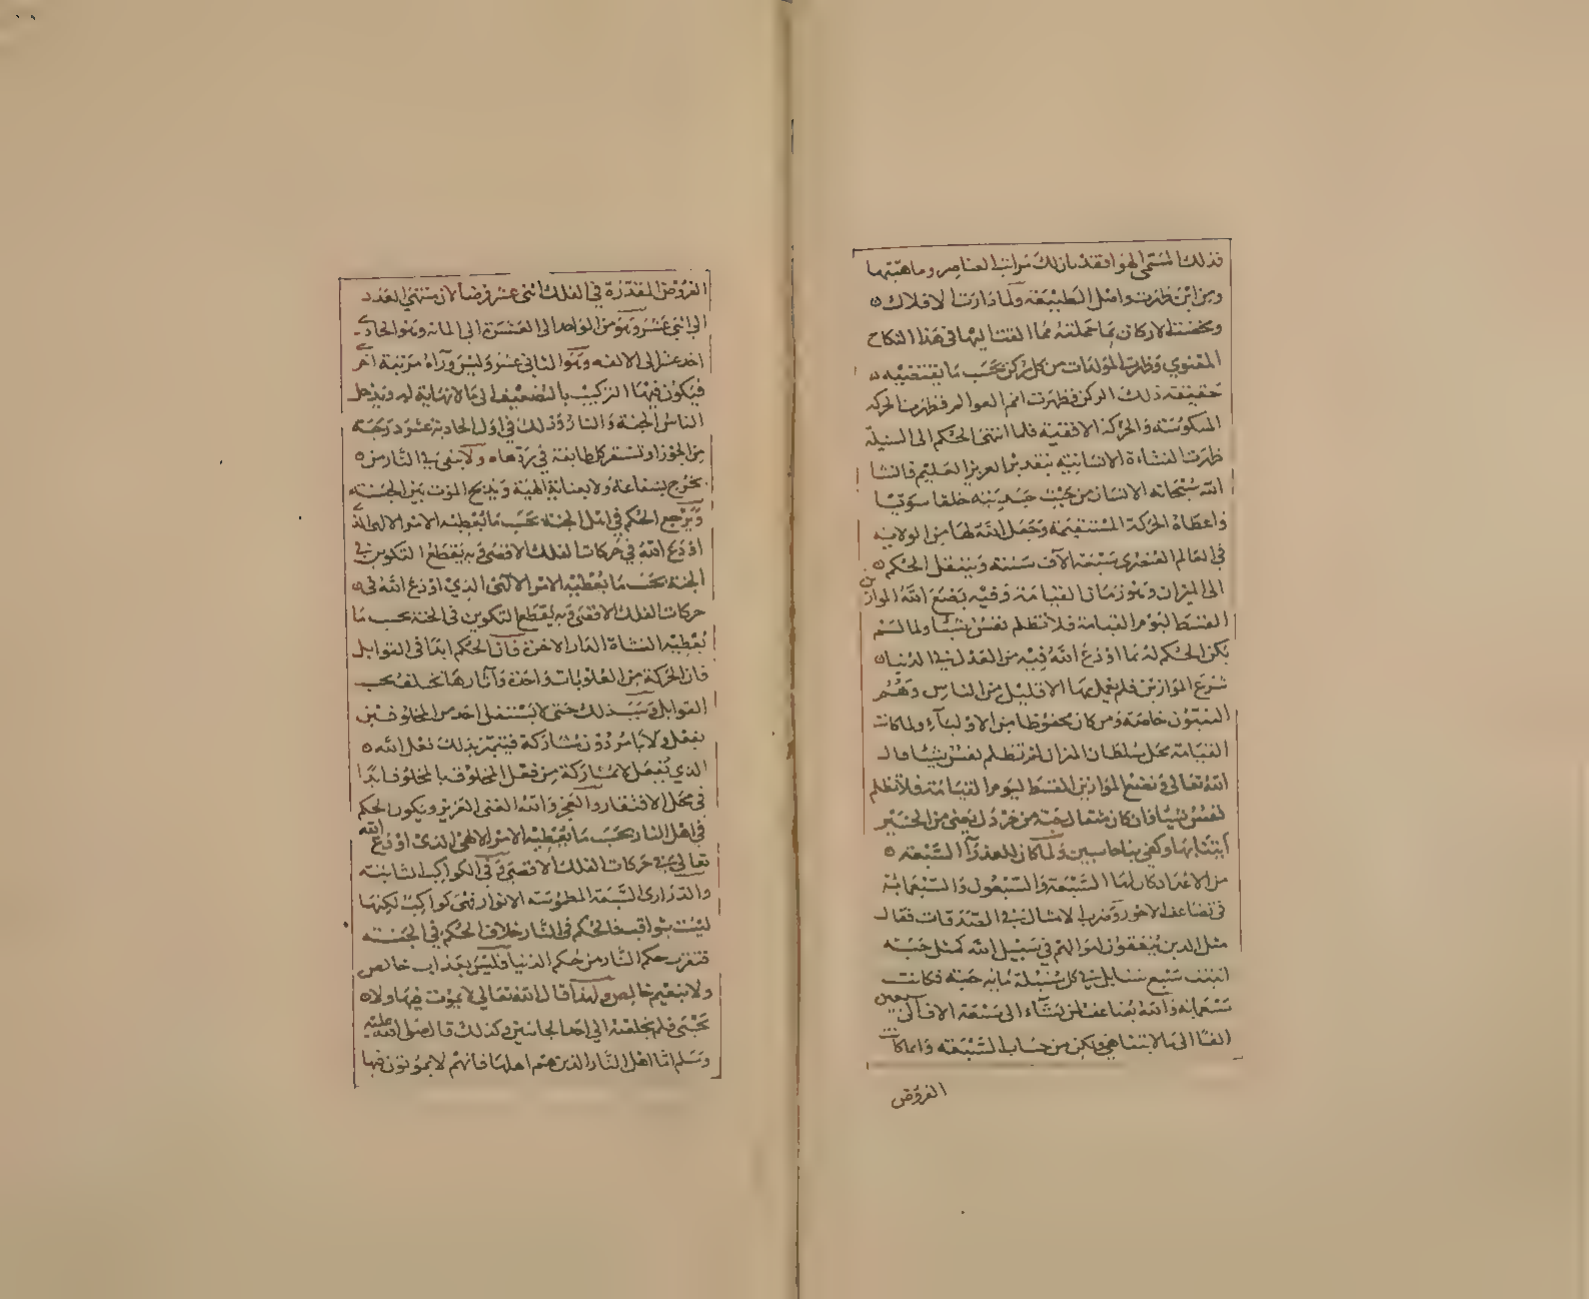 فذلك المسمى الهوا فقد بان لك مراتب العناصر وماهيتها
ومن اين ظهرت واصل الطبيعة ولما دارت الافلاك
ومخضت الاركان بما حملته مما القت اليها في هذا النكاح
المعنوي وظهرت المولدات من كل ركن بحسب ما يقتضيه
حقيقة ذلك الركن فظهرت امم العوالم فظهرت الحركة
المنكوسة والحركة الافقية فلما انتهى الحكم الى السنبلة
ظهرت النشاءة الانسانية بتقدير العزيز العليم فانشا
الله سبحانه الانسان من حيث جسميته خلقا سويا
واعطاه الحركة المستقيمة وجعل الله لها من الولاية
في العالم العنصري سبعة الآف سنة وينتقل الحكم
الى الميزان وهو زمان القيامة وفيه يضع الله الموازين
القسط ليوم القيامة فلا تظلم نفس شيئا ولما لم
يكن الحكم له بما اودع الله فيه من العدل في الدنيا
شرع الموازين فلم يعمل بها الا قليل من الناس وهم
النبيون خاصة ومن كان محفوظا من الاولياء ولما كانت
القيامة محل سلطان الميزان لم تظلم نفس شيئا قال
الله تعالى ونضع الموازين القسط ليوم القيامة فلا تظلم
نفس شيئا وان كان مثقال حبة من خردل يعني من الخير
اتينا بها وكفى بنا حاسبين ولما كان للعذراء السبعة
من الاعداد كان لها السبعة والسبعون والسبعمائة
في تضاعف الاجور وضرب الامثال في الصدقات فقال
مثل الذين ينفقون اموالهم في سبيل الله كمثل حبة
انبتت سبع سنابل في كل سنبلة مائة حبة فكانت
سبعمائة والله يضاعف لمن يشاء الى سبعة الاف الى سبعين
الفا الى ما لا يتناهى ولكن من حساب السبعة وانما كانت
الفروض
الفروض المقدرة في الفلك اثنى عشر فرضا لان منتهى العدد
الى اثنى عشر وهو من الواحد الى العشرة الى المائة وهو الحادي
احد عشر الى الالف وهو الثاني عشر وليس وراءه مرتبة اخر
فيكون فيها التركيب بالتضعيف الى ما لا نهاية له ويدخل
الناس الجنة والنار وذلك في اول الحادية عشر درجة
من الجوزا وتستقر كل طايفة في بردها ولا يبقى في النار من
يخرج بشفاعة ولا بعناية الهية ويذبح الموت بين الجنة
ويرجع الحكم في اهل الجنة بحسب ما يعطيه الامر الالهى الذي
اودع الله في حركات الفلك الاقصى وبه يقطع التكوين في
الجنة بحسب ما يعطيه الامر الالهى الذي اودع الله في
حركات الفلك الاقصى وبه يقطع التكوين في الجنة بحسب ما
يعطيه النشاة الدار الاخرة فان الحكم ابدا في القوابل
فان الحركة من العلويات واحدة واثارها تختلف بحسب
القوابل وسبب ذلك حتى لا يستقل احد من المخلوقين
بفعل ولا بامر دون مشاركة فيتميز بذلك فعل الله
الذي يفعل لا بمشاركة من فعل المخلوق فالمخلوق ابدا
في محل الافتقار والعجز والله الغنى العزيز ويكون الحكم
في اهل النار بحسب ما يعطيه الامر الالهى الذى اودع الله
تعالى في حركات الفلك الاقصى وفي الكواكب الثابتة
والدرارى السبعة المطموسة الانوار فهى كواكب لكنها
ليست بثواقب فالحكم في النار خلاف الحكم في الجنة
فتقرب حكم النار من حكم الدنيا فليس بعذاب خالص
ولا بنعيم خالص ولهذا قال الله تعالى لا يموت فيها ولا
يحيى فلم يخلصه الى احد الجانبين وكذلك قال صلى الله عليه
وسلم اما اهل النار الذين هم اهلها فانهم لا يموتون فيها